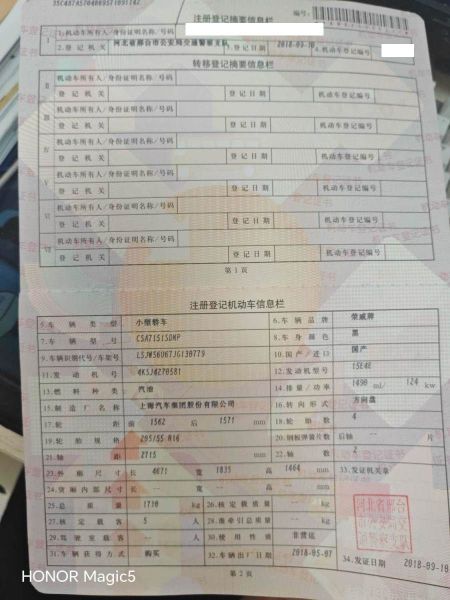 注册登记摘要信息栏
编号:
1.机动车所有人/身份证明名称/号码
2.登记机关 河北省邢台市公安局交通警察支队 3.登记日期 2018-09-10 4.机动车登记编号
转移登记摘要信息栏
II 机动车所有人/身份证明名称/号码
登记机关 登记日期 机动车登记编号
III 机动车所有人/身份证明名称/号码
登记机关 登记日期 机动车登记编号
IV 机动车所有人/身份证明名称/号码
登记机关 登记日期 机动车登记编号
V 机动车所有人/身份证明名称/号码
登记机关 登记日期 机动车登记编号
VI 机动车所有人/身份证明名称/号码
登记机关 登记日期 机动车登记编号
VII 机动车所有人/身份证明名称/号码
登记机关 登记日期 机动车登记编号
第1页
注册登记机动车信息栏
5.车辆类型 小型轿车 6.车辆品牌 荣威牌
7.车辆型号 CSA7151SDMP 8.车身颜色 黑
9.车辆识别代号/车架号 10.国产/进口 国产
11.发动机号 12.发动机型号 15E4E
13.燃料种类 汽油 14.排量/功率 1490 ml/ 124 kw
15.制造厂名称 上海汽车集团股份有限公司 16.转向形式 方向盘
17.轮距 前 1562 后 1571 mm 18.轮胎数 4
19.轮胎规格 205/55 R16 20.钢板弹簧片数 后轴 -- 片
21.轴距 2715 mm 22.轴数 2
23.外廓尺寸 长 4671 宽 1835 高 1464 mm 33.发证机关章
24.货厢内部尺寸 长 宽 高 mm
25.总质量 1710 kg 26.核定载质量 kg
27.核定载客 5 人 28.准牵引总质量 kg
29.驾驶室载客 -- 人 30.使用性质 非营运
31.车辆获得方式 购买 32.车辆出厂日期 2018-05-07 34.发证日期 2018-09-10
第2页
HONOR Magic5